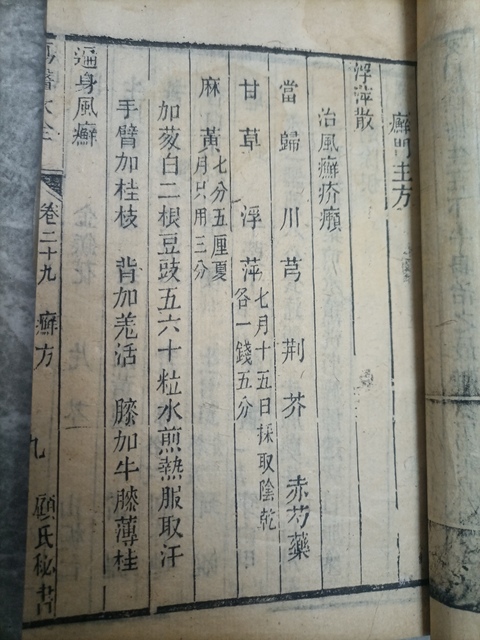 癬門主方
浮萍散
治風癬疥癩
當歸 川芎 荆芥 赤芍藥
甘草 浮萍七月十五日採取陰乾各一錢五分
麻黃七分五厘夏月只用三分
加葱白二根豆豉五六十粒水煎熱服取汗
手臂加桂枝 背加羌活 膝加牛膝薄桂
遍身風癬
卷二十九 癬方 九 顧氏秘書